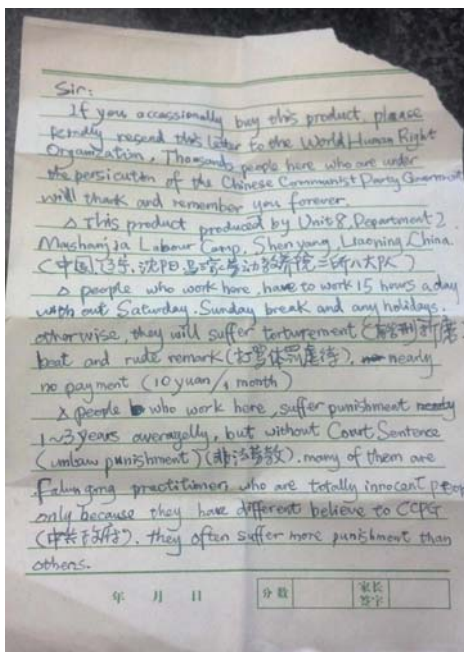 Sir:
If you occassionally buy this product, please
kindly resend this letter to the World Human Right
Organization. Thousands people here who are under
the persicution of the Chinese Communist Party Government
will thank and remember you forever.
This product produced by Unit 8, Department 2,
Mashanjia Labour Camp, Shenyang, Liaoning, China.
(中国,辽宁,沈阳,马三家劳动教养院二所八大队)
people who work here, have to work 15 hours a day
with out Saturday, Sunday break and any holidays.
otherwise, they will suffer torturement (折磨),
beat and rude remark (打骂体罚虐待), nearly
no payment (10 yuan/1 month)
people who work here, suffer punishment
1~3 years averagelly, but without Court Sentence
(unlaw punishment) (非法劳教). many of them are
Falun gong practitioner, who are totally innocent people
only because they have different believe to CCPG
(中共政府). they often suffer more punishment than
others.
年 月 日
分数 家长签字